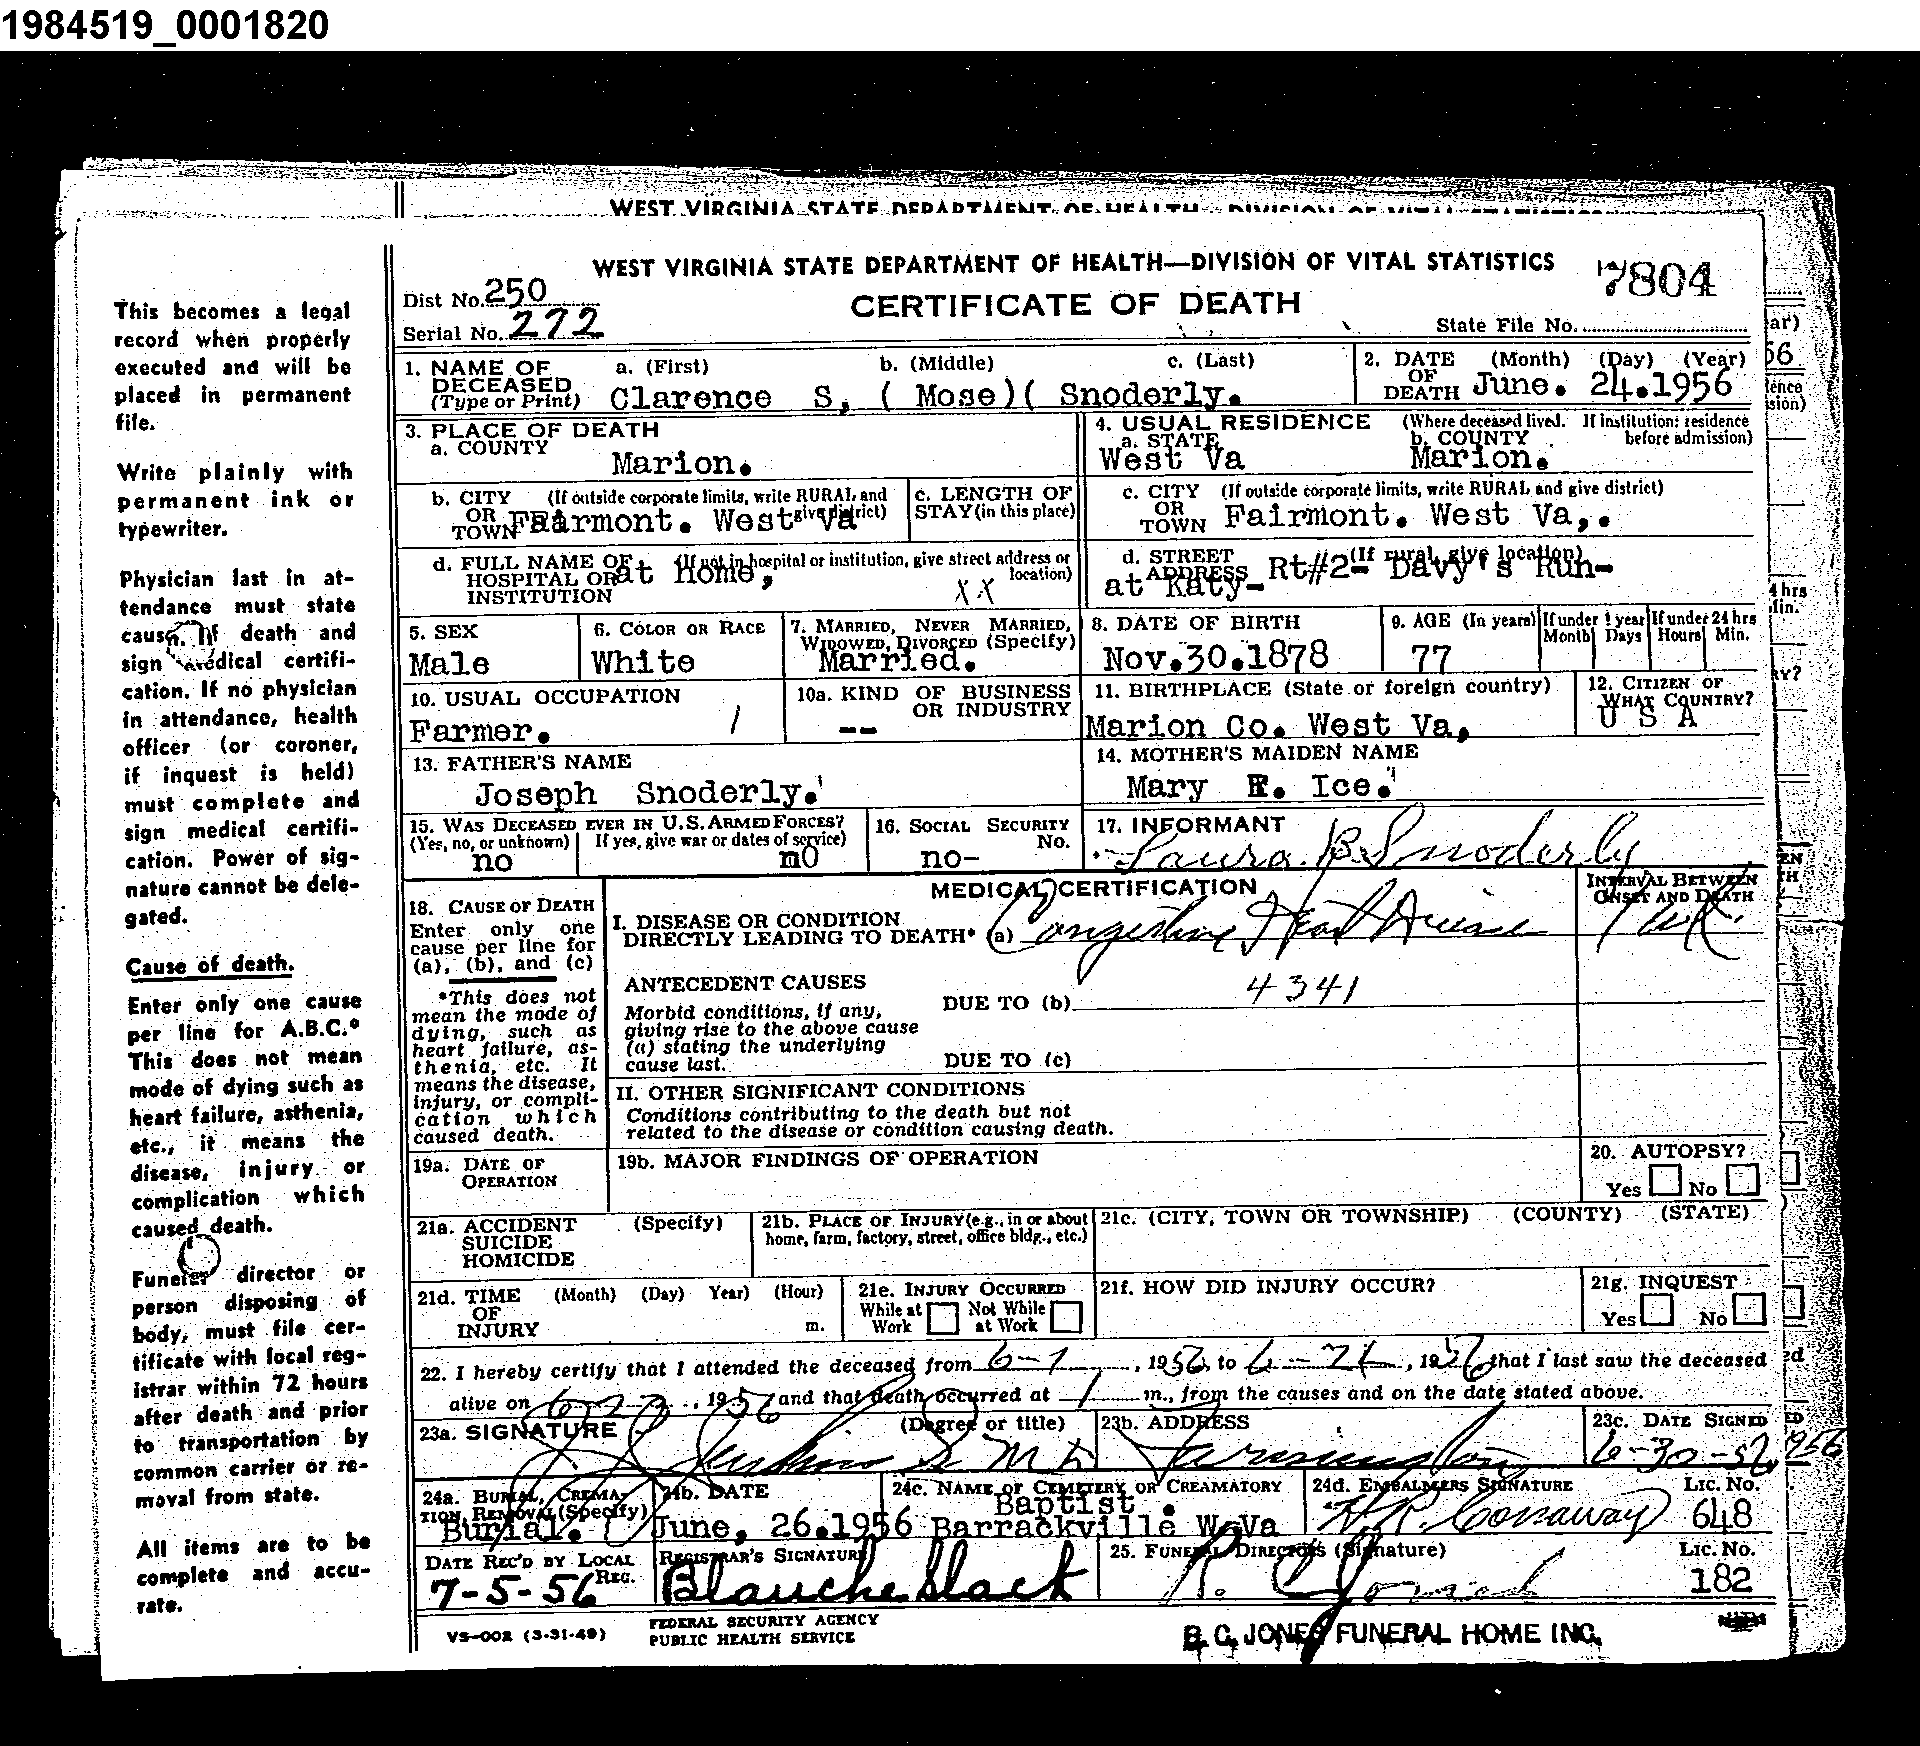 1984519_0001820
WEST VIRGINIA STATE DEPARTMENT OF HEALTH—DIVISION OF VITAL STATISTICS
WEST VIRGINIA STATE DEPARTMENT OF HEALTH—DIVISION OF VITAL STATISTICS
7804
Dist No. 250
CERTIFICATE OF DEATH
Serial No. 272
State File No.
This becomes a legal
record when properly
executed and will be
placed in permanent
file.
Write plainly with
permanent ink or
typewriter.
Physician last in at-
tendance must state
cause. If death and
sign medical certifi-
cation. If no physician
in attendance, health
officer (or coroner,
if inquest is held)
must complete and
sign medical certifi-
cation. Power of sig-
nature cannot be dele-
gated.
Cause of death.
Enter only one cause
per line for A.B.C.*
This does not mean
mode of dying such as
heart failure, asthenia,
etc., it means the
disease, injury or
complication which
caused death.
Funeral director or
person disposing of
body, must file cer-
tificate with local reg-
istrar within 72 hours
after death and prior
to transportation by
common carrier or re-
moval from state.
All items are to be
complete and accu-
rate.
1. NAME OF DECEASED (Type or Print) a. (First) b. (Middle) c. (Last)
Clarence S, ( Mose)( Snoderly.
2. DATE OF DEATH (Month) (Day) (Year)
June. 24.1956
3. PLACE OF DEATH
a. COUNTY
Marion.
4. USUAL RESIDENCE (Where deceased lived. If institution: residence before admission)
a. STATE West Va b. COUNTY Marion.
b. CITY OR TOWN (If outside corporate limits, write RURAL and give district)
Fairmont. West Va
c. LENGTH OF STAY (in this place)
c. CITY OR TOWN (If outside corporate limits, write RURAL and give district)
Fairmont. West Va,.
d. FULL NAME OF HOSPITAL OR INSTITUTION (If not in hospital or institution, give street address or location)
at Home, XX
d. STREET ADDRESS (If rural, give location)
Rt#2- Davy's Run-
at Katy-
5. SEX
Male
6. COLOR OR RACE
White
7. MARRIED, NEVER MARRIED, WIDOWED, DIVORCED (Specify)
Married.
8. DATE OF BIRTH
Nov.30.1878
9. AGE (In years) If under 1 year Month Days If under 24 hrs Hours Min.
77
10. USUAL OCCUPATION
Farmer. /
10a. KIND OF BUSINESS OR INDUSTRY
--
11. BIRTHPLACE (State or foreign country)
Marion Co. West Va,
12. CITIZEN OF WHAT COUNTRY?
U S A
13. FATHER'S NAME
Joseph Snoderly.
14. MOTHER'S MAIDEN NAME
Mary E. Ice.
15. WAS DECEASED EVER IN U.S. ARMED FORCES?
(Yes, no, or unknown) If yes, give war or dates of service)
no no
16. SOCIAL SECURITY No.
no-
17. INFORMANT
Laura B Snoderly
18. CAUSE OF DEATH
Enter only one
cause per line for
(a), (b), and (c)
*This does not
mean the mode of
dying, such as
heart failure, as-
thenia, etc. It
means the disease,
injury, or compli-
cation which
caused death.
MEDICAL CERTIFICATION
INTERVAL BETWEEN ONSET AND DEATH
I. DISEASE OR CONDITION
DIRECTLY LEADING TO DEATH* (a) Congestive Heart Disease 1 wk.
ANTECEDENT CAUSES
Morbid conditions, if any,
giving rise to the above cause
(a) stating the underlying
cause last.
DUE TO (b)
4341
DUE TO (c)
II. OTHER SIGNIFICANT CONDITIONS
Conditions contributing to the death but not
related to the disease or condition causing death.
19a. DATE OF OPERATION
19b. MAJOR FINDINGS OF OPERATION
20. AUTOPSY?
Yes No
21a. ACCIDENT SUICIDE HOMICIDE (Specify)
21b. PLACE OF INJURY (e.g., in or about home, farm, factory, street, office bldg., etc.)
21c. (CITY, TOWN OR TOWNSHIP) (COUNTY) (STATE)
21d. TIME OF INJURY (Month) (Day) Year) (Hour) m.
21e. INJURY OCCURRED
While at Work Not While at Work
21f. HOW DID INJURY OCCUR?
21g. INQUEST
Yes No
22. I hereby certify that I attended the deceased from 6-1, 1956 to 6-24, 1956 that I last saw the deceased
alive on 6-23, 1956 and that death occurred at 1 m., from the causes and on the date stated above.
23a. SIGNATURE (Degree or title)
Jenkins M D
23b. ADDRESS
Farmington
23c. DATE SIGNED
6-30-56
24a. BURIAL, CREMATION, REMOVAL (Specify)
Burial.
24b. DATE
June, 26.1956
24c. NAME OF CEMETERY OR CREAMATORY
Baptist .
Barrackville W.Va
24d. EMBALMERS SIGNATURE LIC. NO.
H.R. Conaway 648
DATE REC'D BY LOCAL REG.
7-5-56
REGISTRAR'S SIGNATURE
Blanche Slack
25. FUNERAL DIRECTORS (Signature) LIC. NO.
182
VS-002 (3-31-49)
FEDERAL SECURITY AGENCY
PUBLIC HEALTH SERVICE
B. C. JONES FUNERAL HOME INC.